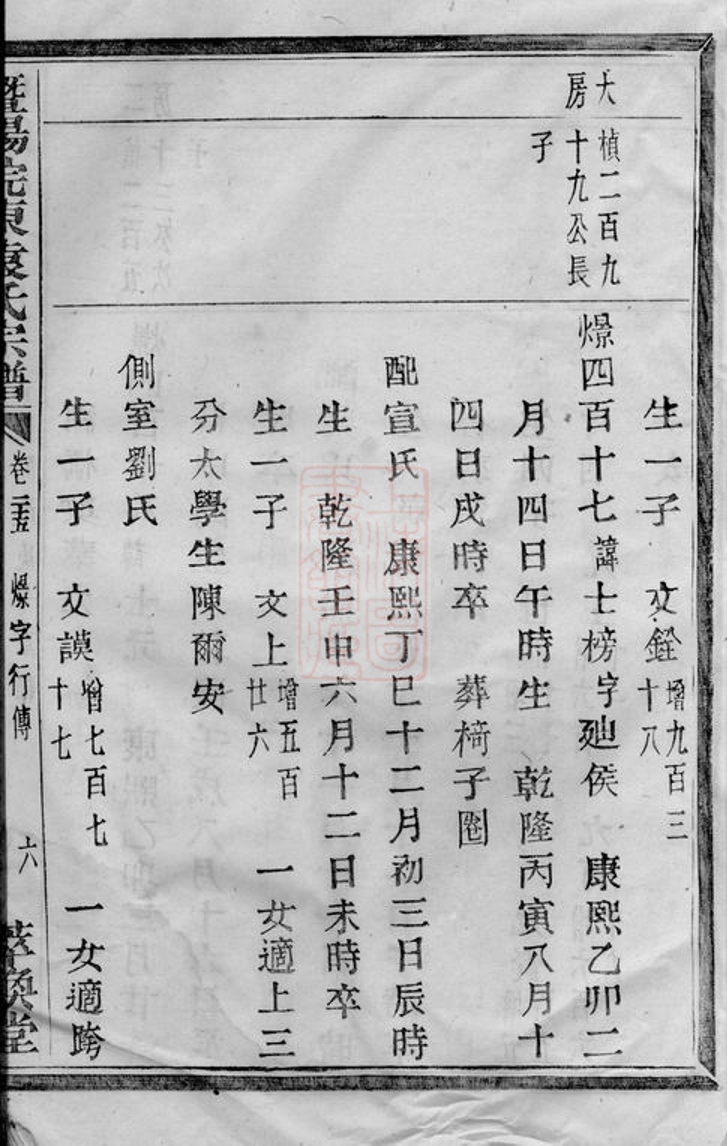 大房
楨二百九十九公長子
生一子　文銓增九百三十八
燝四百十七諱士榜字廸侯　康熙乙卯二
月十四日午時生　乾隆丙寅八月十
四日戌時卒　葬椅子圈
配宣氏　康熙丁巳十二月初三日辰時
生　乾隆壬申六月十二日未時卒
生一子　文上增五百廿六　一女適上三
分太學生陳爾安
側室劉氏
生一子　文謨增七百七十七　一女適跨
暨陽浣東袁氏宗譜　卷二十五　燝字行傳　六　堂